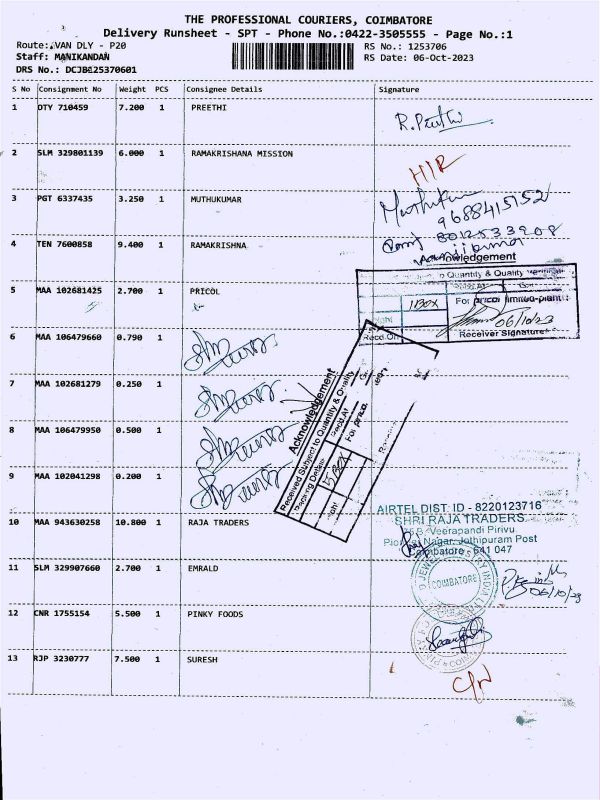 THE PROFESSIONAL COURIERS, COIMBATORE
Delivery Runsheet - SPT - Phone No.:0422-3505555 - Page No.:1
Route: VAN DLY - P20
RS No.: 1253706
Staff: MANIKANDAN
RS Date: 06-Oct-2023
DRS No.: DCJB125370601
S No Consignment No Weight PCS Consignee Details Signature
1 DTY 710459 7.200 1 PREETHI
R. Preethi
2 SLM 329801139 6.000 1 RAMAKRISHANA MISSION
3 PGT 6337435 3.250 1 MUTHUKUMAR
Muthukum
9688415152
4 TEN 7600858 9.400 1 RAMAKRISHNA
8012533908
Acknowledgement
to Quantity & Quality
5 MAA 102681425 2.700 1 PRICOL
For pricol limited-plant-I
1 BOX
06/10/23
Recd.On
Receiver Signature
6 MAA 106479660 0.790 1
7 MAA 102681279 0.250 1
8 MAA 106479950 0.500 1
9 MAA 102041298 0.200 1
Acknowledgement
Received Subject to Quantity & Quality
Packing Details
Recd.At
For prico
5 BOX
10 MAA 943630258 10.800 1 RAJA TRADERS
AIRTEL DIST. ID - 8220123716
SHRI RAJA TRADERS
Veerapandi Pirivu
Nagar, Jothipuram Post
Coimbatore 641 047
11 SLM 329907660 2.700 1 EMRALD
COIMBATORE
06/10/23
12 CNR 1755154 5.500 1 PINKY FOODS
13 RJP 3230777 7.500 1 SURESH